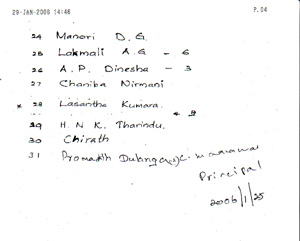 29-JAN-2008 14:46 P.04
24 Manori D.G.
25 Lakmali A.G - 6
26 A.P. Dinesha - 3
27 Chaniba Nirmani
* 28 Lasantha Kumara.
29 H.N.K. Tharindu.
30 Chirath
31 Promadih
Principal
2006/1/25